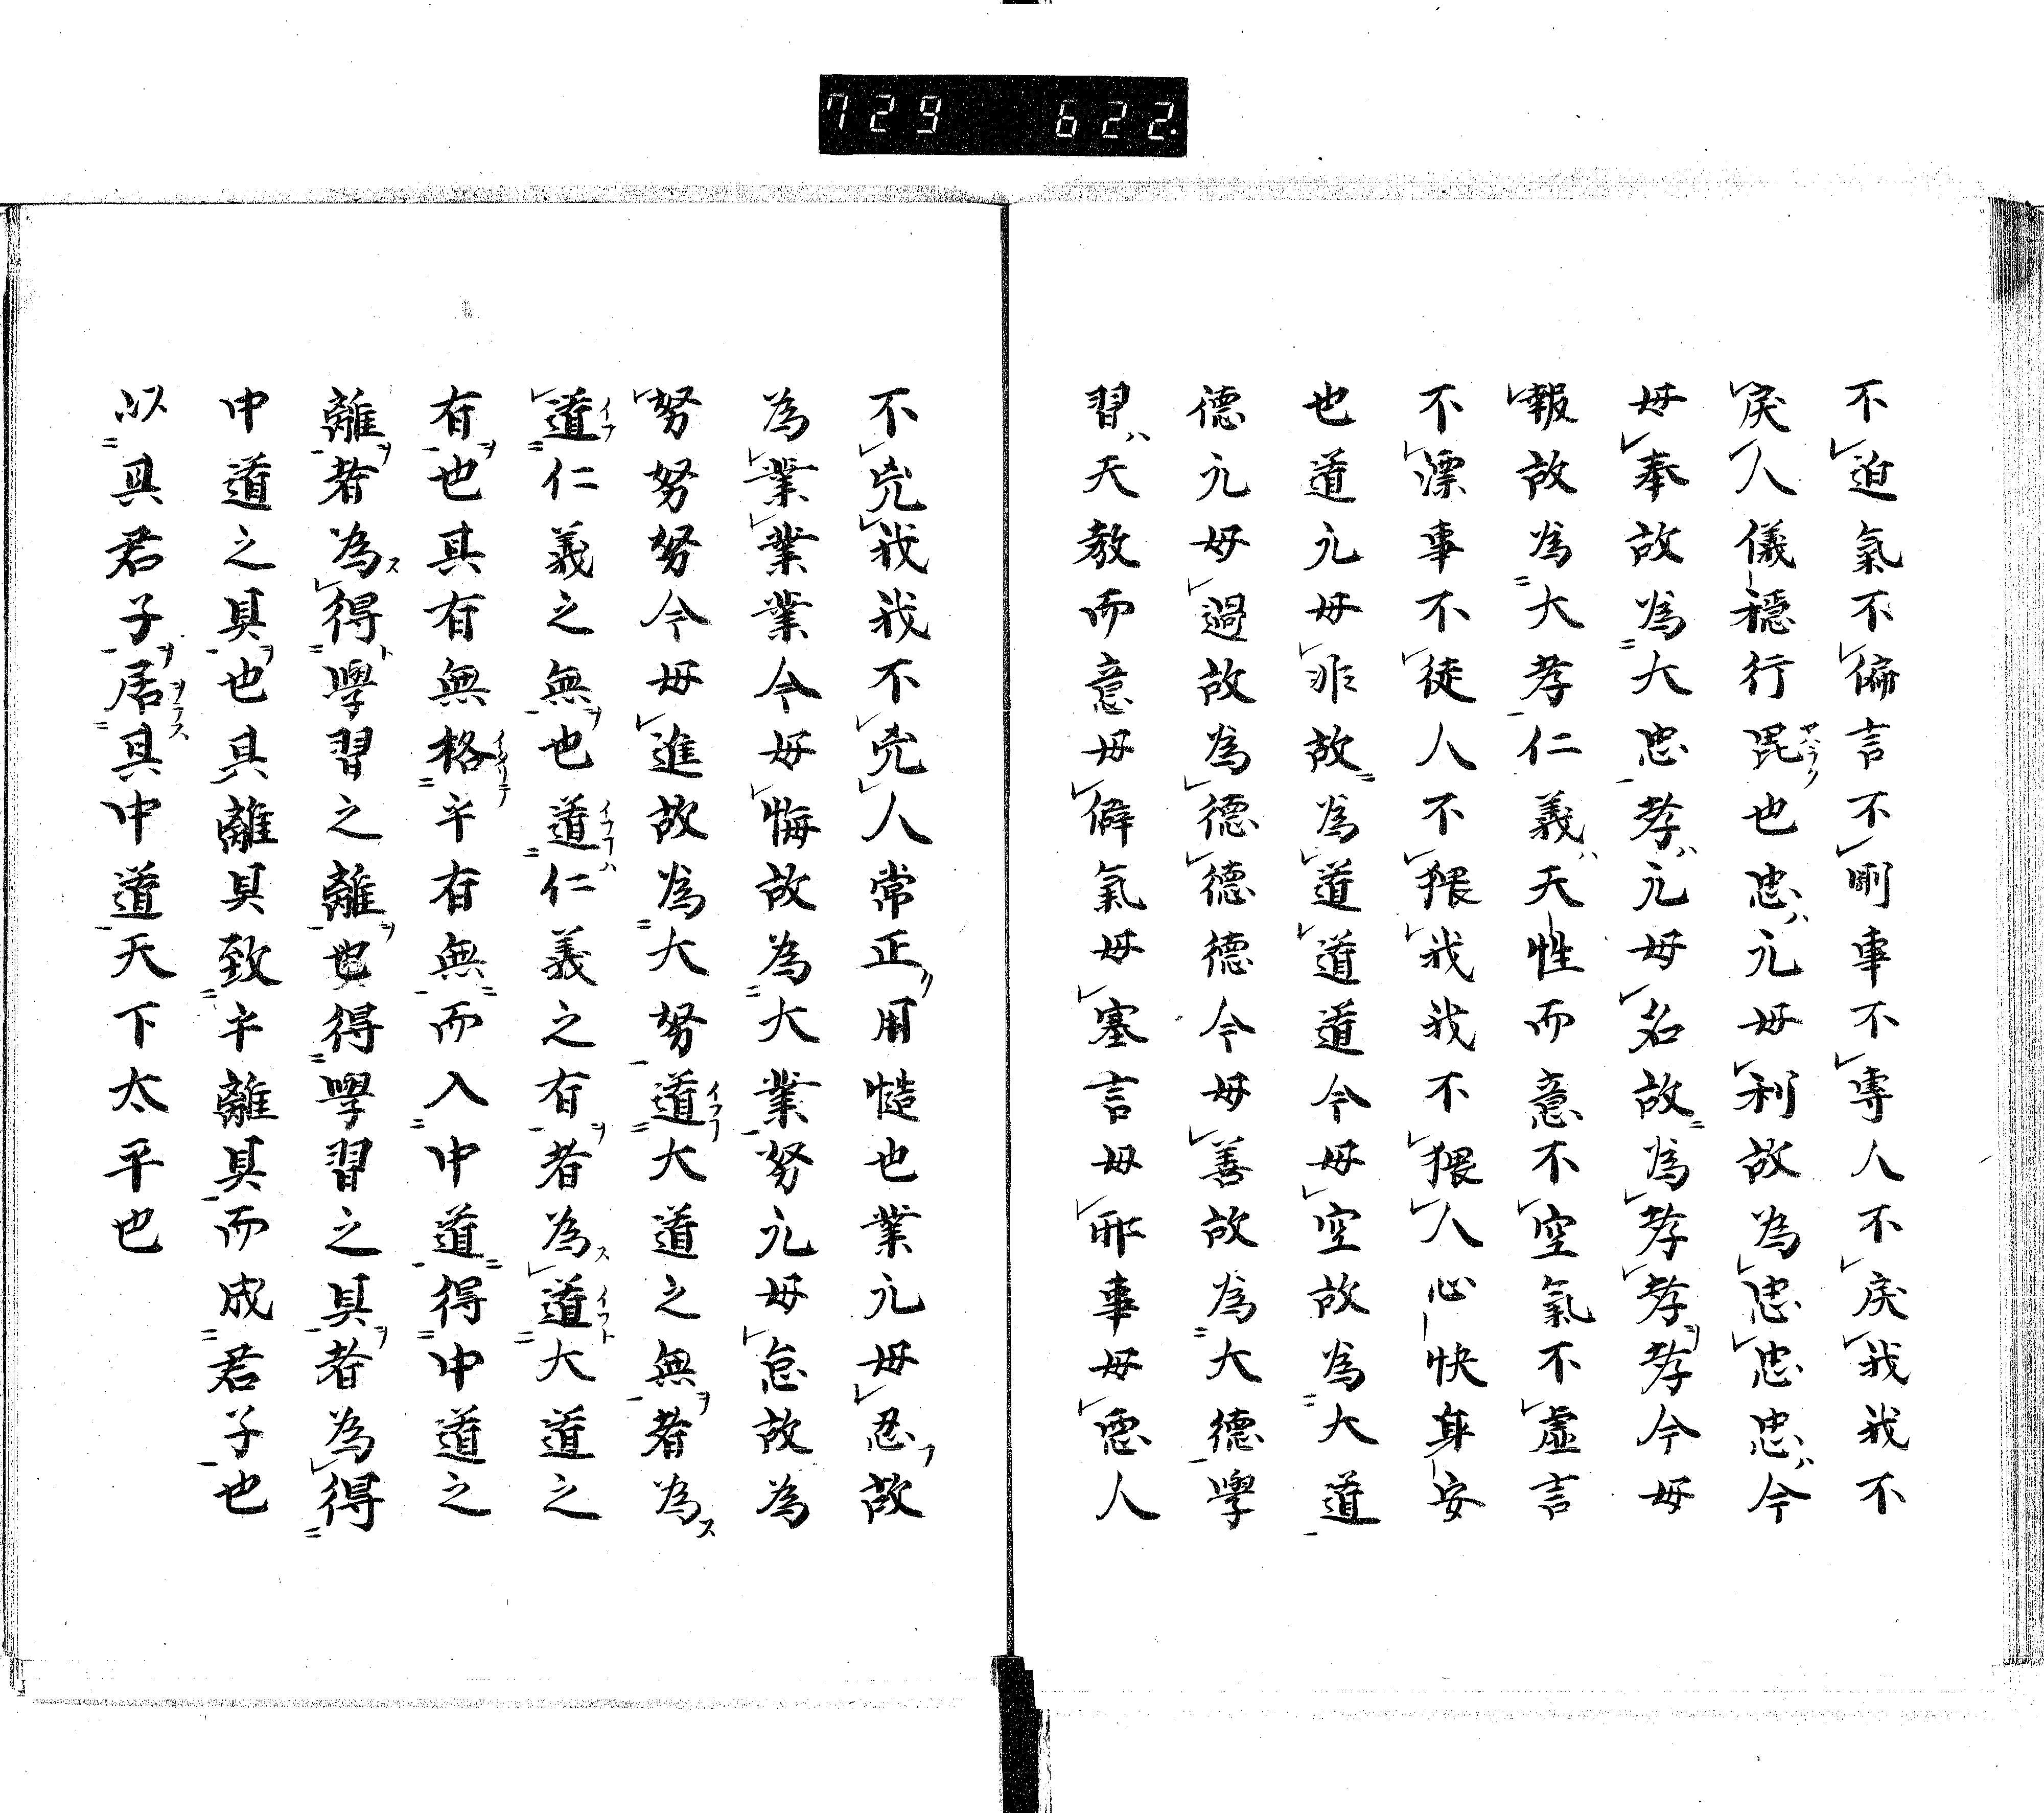 729 622.
不迫氣不偏言不剛事不專人不戻我我不
戻人儀穩行毘也忠ハ元毋利故為忠忠忠ハ今
毋奉故為大忠孝ハ元毋名故為孝孝孝今毋
報故為大孝仁義ハ天性而意不空氣不虛言
不漂事不徒人不猥我我不猥人心快身安
也道元毋非故為道道道今毋空故為大道
德元毋過故為德德德今毋善故為大德學
習ハ天教而意毋僻氣毋塞言毋邪事毋悪人
不兇我我不兇人常正用慥也業元毋忍故
為業業業今毋悔故為大業努元毋怠故為
努努努今毋進故為大努道大道之無者為
道仁義之無也道仁義之有者為道大道之
有也其有無格半有無而入中道得中道之
離者為得學習之離也得學習之具者為得
中道之具也具離具致半離具而成君子也
以具君子居具中道天下太平也